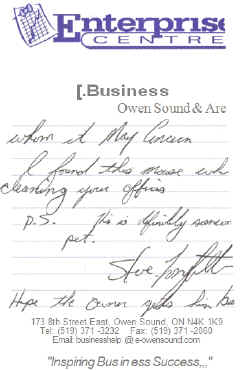 Enterprise
CENTRE
[.Business
Owen Sound & Are
whom it May Concern
I found this mouse whi
cleaning your offices
P.S. This is definitly someon
pet.
Steve
Hope the owner gets him Ba
173 8th Street East, Owen Sound, ON N4K 1K9
Tel: (519) 371-3232 Fax: (519) 371-2860
Email: businesshelp @ e-owensound.com
"Inspiring Business Success,,,"